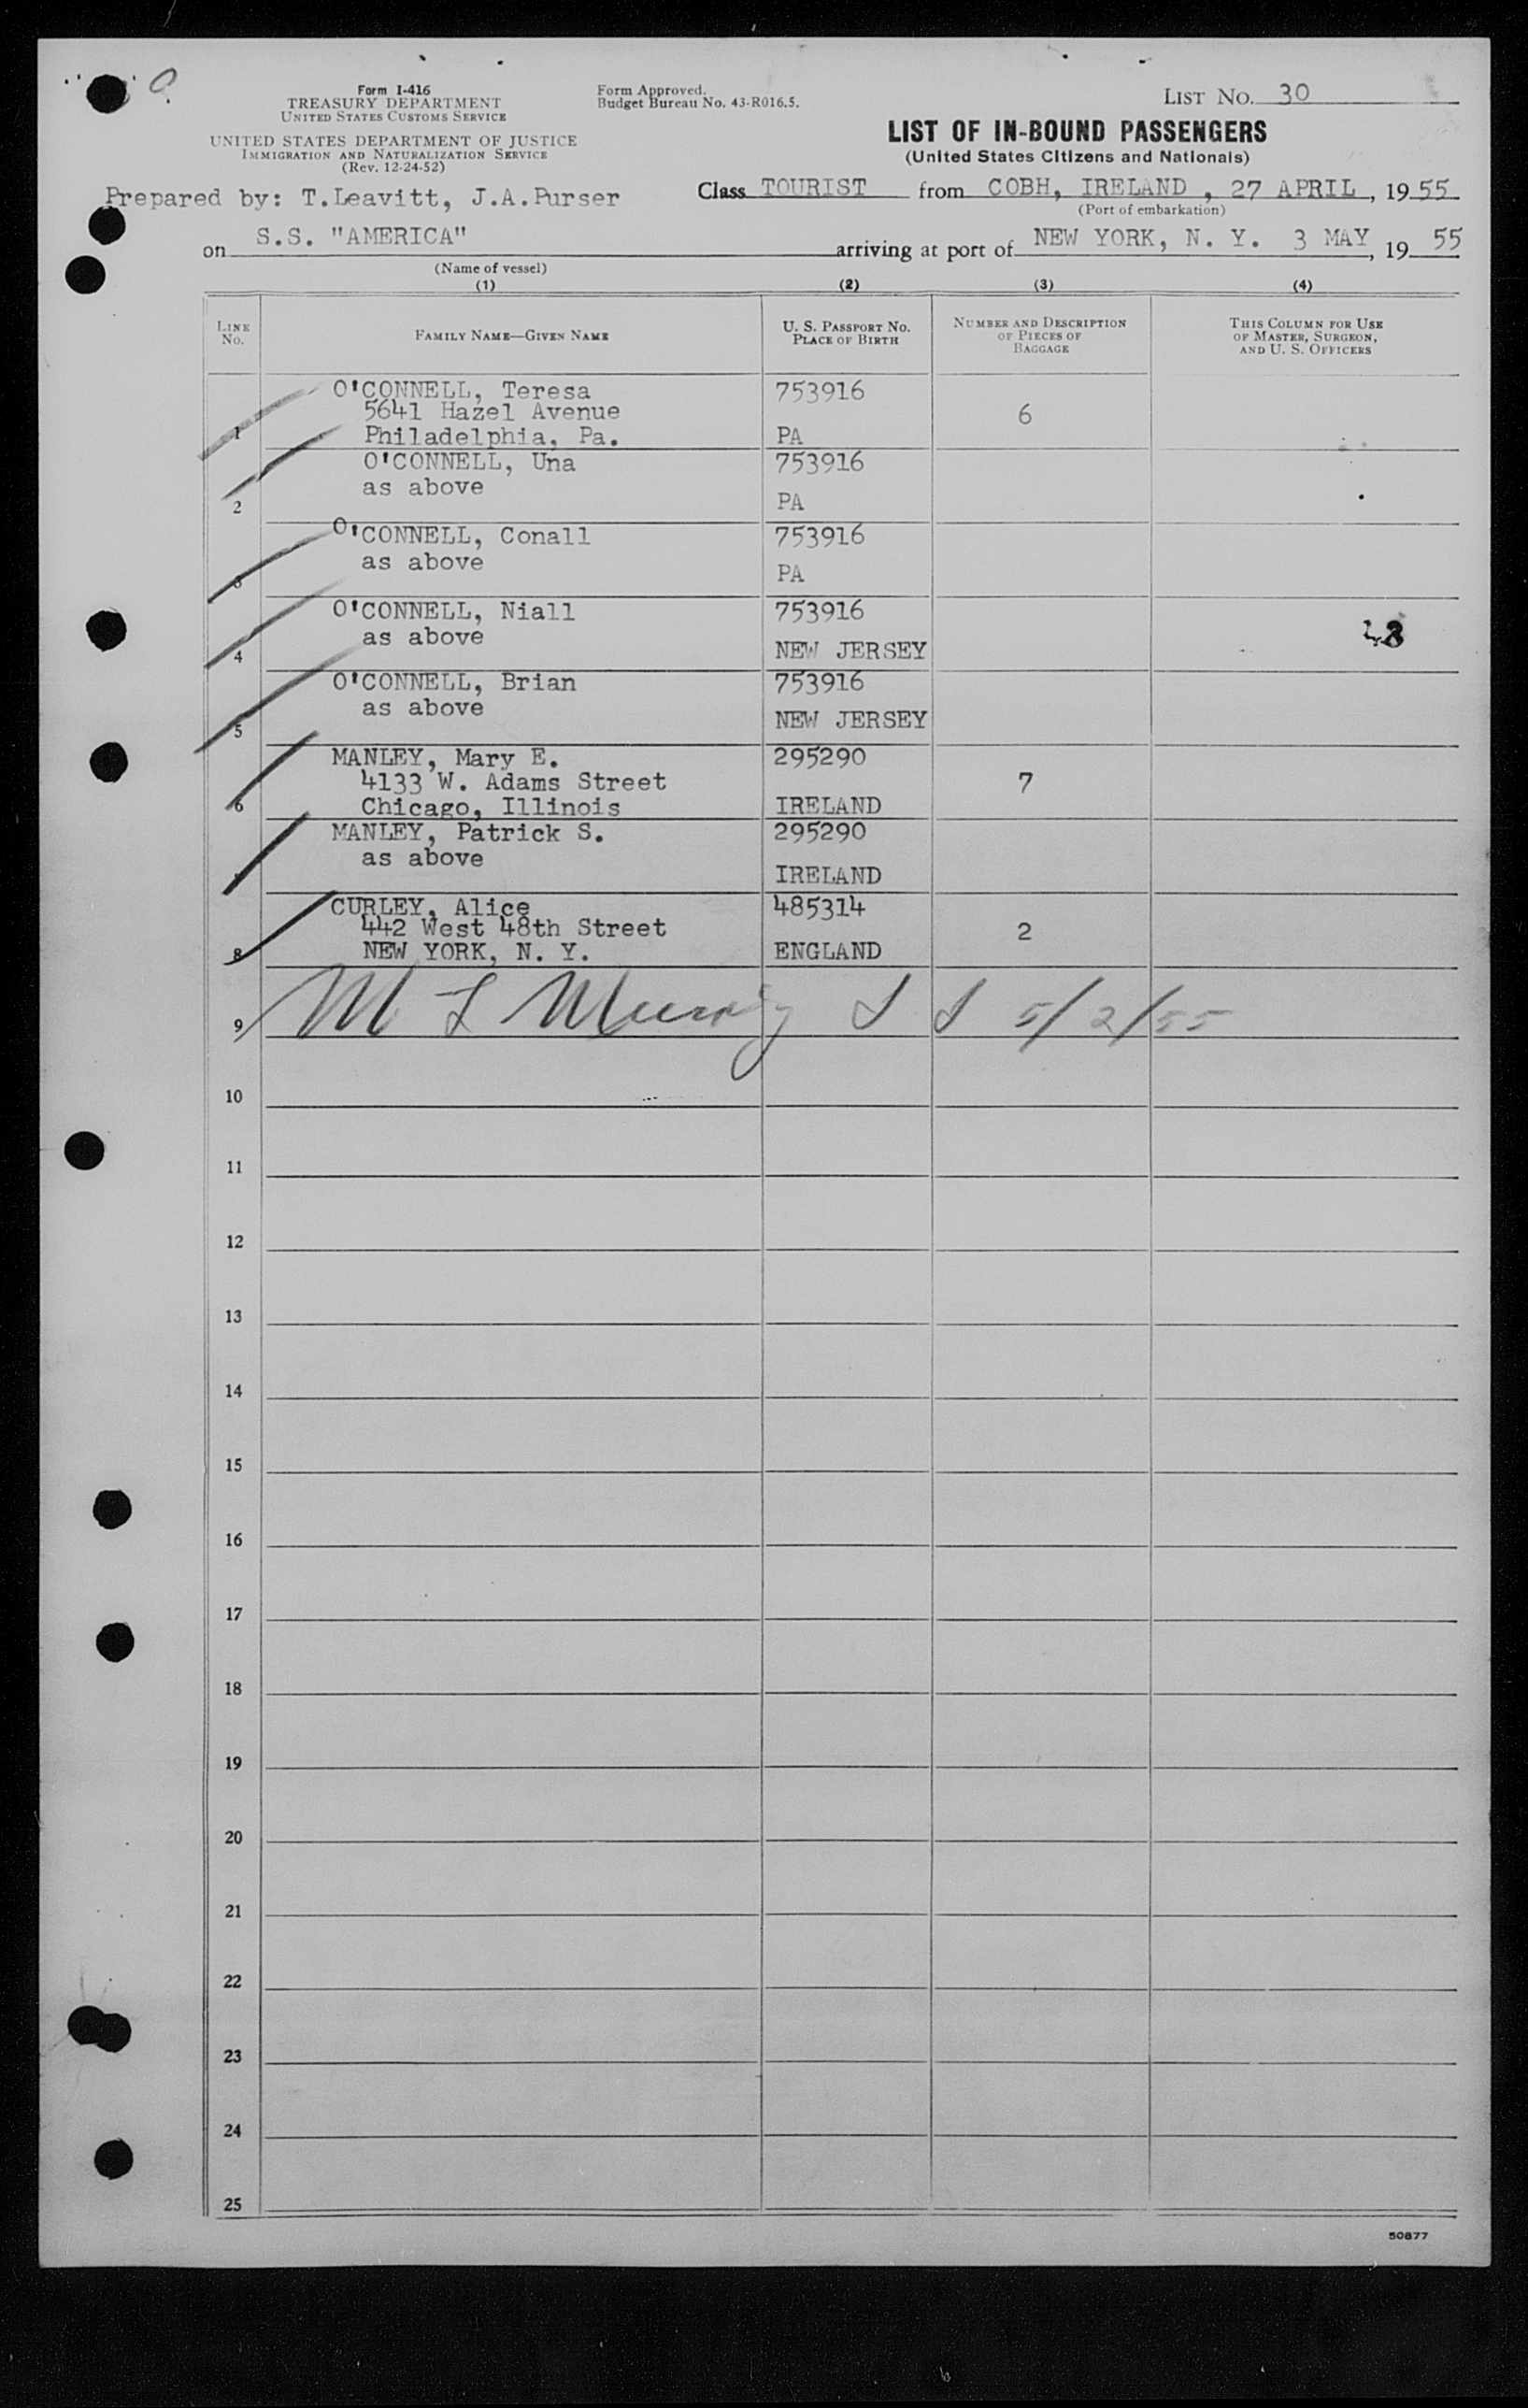 Form I-416
TREASURY DEPARTMENT
UNITED STATES CUSTOMS SERVICE
UNITED STATES DEPARTMENT OF JUSTICE
IMMIGRATION AND NATURALIZATION SERVICE
(Rev. 12-24-52)
Form Approved.
Budget Bureau No. 43-R016.5.
LIST No. 30
LIST OF IN-BOUND PASSENGERS
(United States Citizens and Nationals)
Prepared by: T.Leavitt, J.A.Purser
Class TOURIST from COBH, IRELAND , 27 APRIL , 19 55
(Port of embarkation)
on S.S. "AMERICA" arriving at port of NEW YORK, N. Y. 3 MAY , 19 55
(Name of vessel)
(1) (2) (3) (4)
LINE No. FAMILY NAME—GIVEN NAME U. S. PASSPORT NO. PLACE OF BIRTH NUMBER AND DESCRIPTION OF PIECES OF BAGGAGE THIS COLUMN FOR USE OF MASTER, SURGEON, AND U. S. OFFICERS
O'CONNELL, Teresa 753916
5641 Hazel Avenue 6
1 Philadelphia, Pa. PA
O'CONNELL, Una 753916
as above
2 PA
O'CONNELL, Conall 753916
as above
3 PA
O'CONNELL, Niall 753916
as above
4 NEW JERSEY
O'CONNELL, Brian 753916
as above
5 NEW JERSEY
MANLEY, Mary E. 295290
4133 W. Adams Street 7
6 Chicago, Illinois IRELAND
MANLEY, Patrick S. 295290
as above
IRELAND
CURLEY, Alice 485314
442 West 48th Street 2
8 NEW YORK, N. Y. ENGLAND
9 M L 5/2/55
10
11
12
13
14
15
16
17
18
19
20
21
22
23
24
25
50877